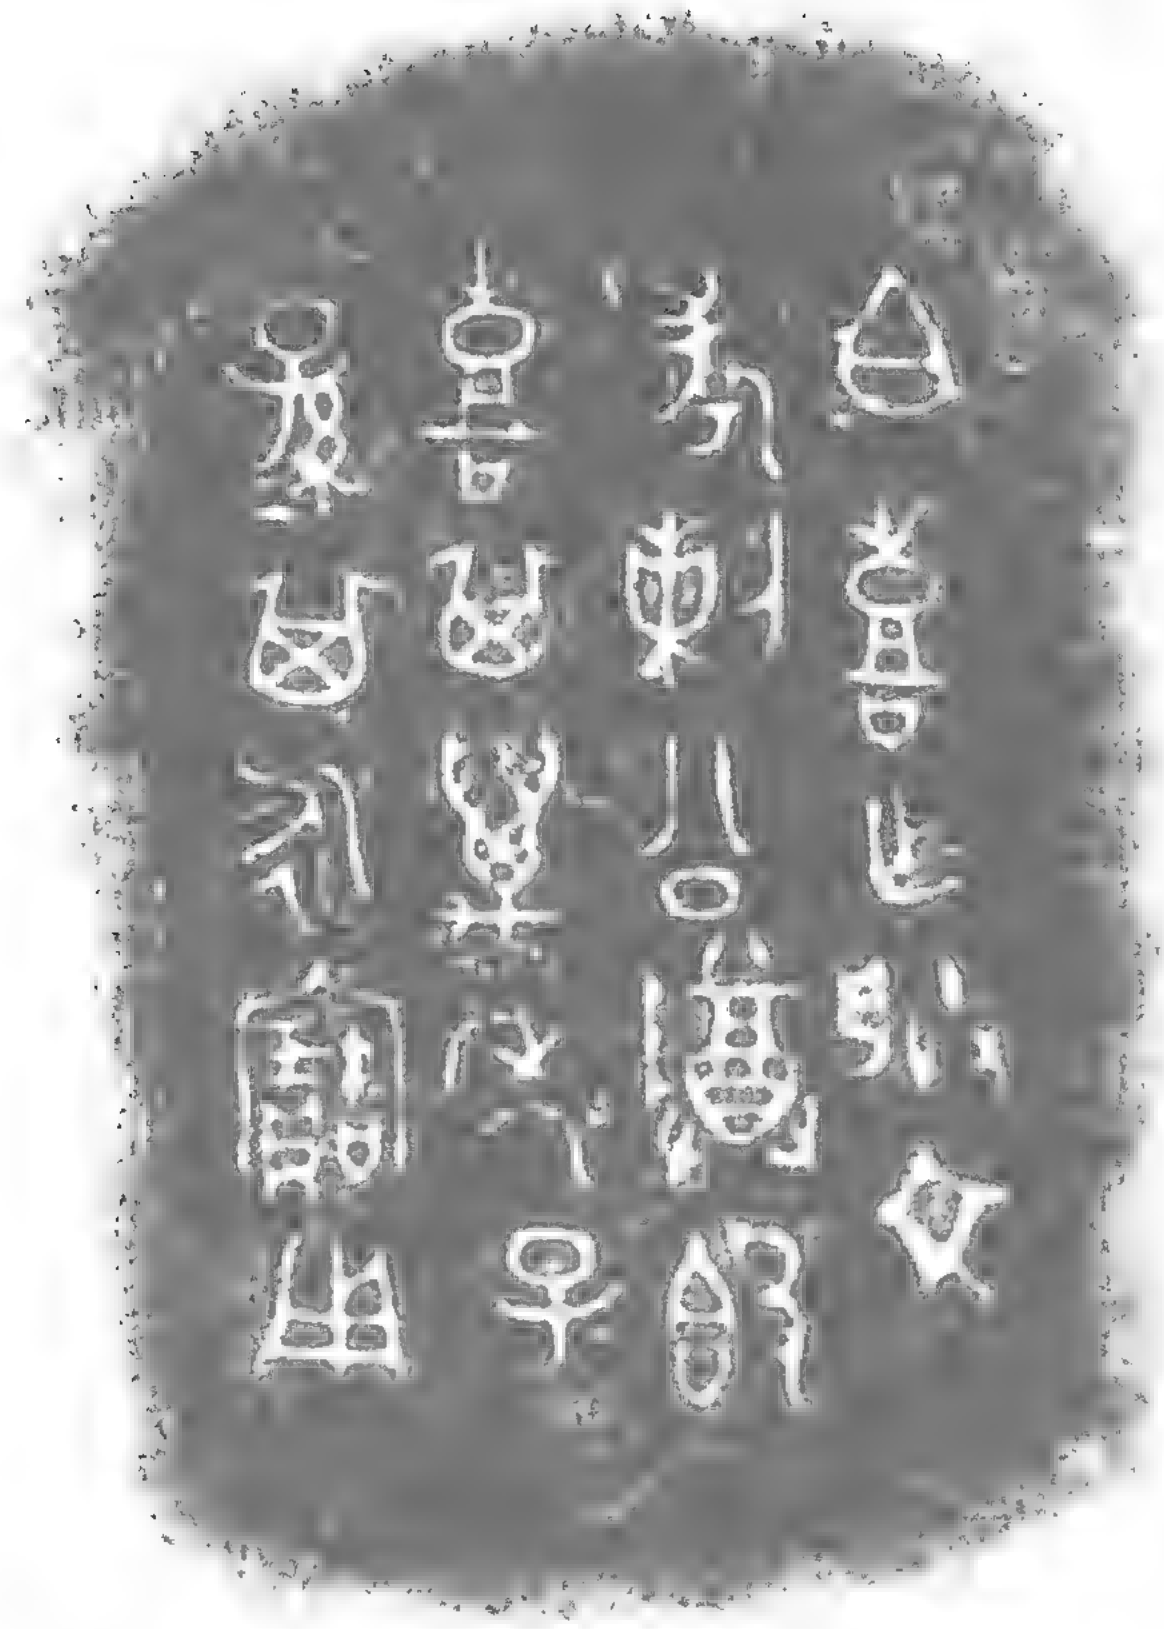 白喜乍朕文
考剌公尊𣪘
喜其萬年子=
孫=其永寶用